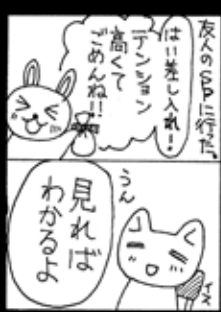 友人のSPに行った。
はい差し入れ!
テンション
高くて
ごめんね!!
うん
見れば
わかるよ
イス